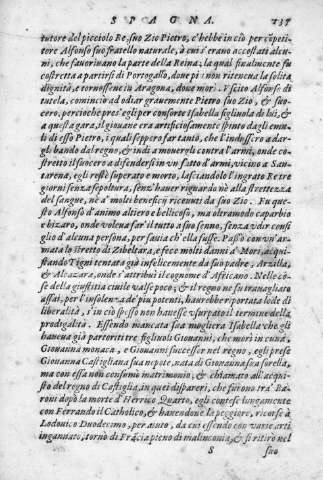 SPAGNA. 137
tutore del picciolo Re, suo Zio Pietro, c'hebbe in ciò per cōpeti-
tore Alfonso suo fratello naturale, à cui s'erano accostati alcu-
ni, che fauoriuano la parte della Reina; la qual finalmente fu
costretta a partirsi di Portogallo, doue più non riteneua la solita
dignità, e tornossene in Aragona, doue morì. Vscito Alfonso di
tutela, cominciò ad odiar grauemente Pietro suo Zio, & suo-
cero, percioche pres' egli per consorte Isabella figliuola di lui, &
a questa gara, il giouane era artificiosamente spinto dagli emu-
li di esso Pietro, i quali seppero far tanto, che l'indussero a dar-
gli bando dal regno, & indi a mouergli contra l'armi, onde co-
stretto il suocero a difendersi in vn fatto d'armi, vicino a San-
tarena, egli restò superato e morto, lasciandolo l'ingrato Re tre
giorni senza sepoltura, senz' hauer riguardo nè alla strettezza
del sangue, nè a' molti beneficij riceuuti da suo Zio. Fu que-
sto Alfonso d'animo altiero e bellicoso, ma oltramodo caparbio
e bizaro, onde voleua far il tutto a suo senno, senza vdir consi-
glio d'alcuna persona, per sauia ch'ella fusse. Passò con vn'ar-
mata lo stretto di Zibeltara, e fece molti danni a' Mori, acqui-
stando Tigni tentata già infelicemente da suo padre, Arzilla,
& Alcazara, onde s'attribuì il cognome d'Africano. Nelle co-
se della giustitia ciuile valse poco, & il regno ne fu trauagliato
assai, per l'insolenza de' piu potenti, haurebbe riportata lode di
liberalità, s'in ciò spesso non hauesse varcato il termine della
prodigalità. Essendo mancata sua mogliera Isabella che gli
haueua già partoriti tre figliuoli Giouanni, che morì in cuna,
Giouanna monaca, e Giouanni successor nel regno, egli prese
Giouanna Castigliana sua nepote, nata di Giouanna sua sorella,
ma con essa non consumò matrimonio; & chiamato all'acqui-
sto del regno di Castiglia, in quei dispareri, che furono tra' Ba-
roni dopò la morte d'Herrico Quarto, egli contese lungamente
con Ferrando il Catholico, & hauendone la peggiore, ricorse à
Lodouico Duodecimo, per aiuto, da cui essendo con varie arti
ingannato, tornò di Frācia pieno di malinconia, & si ritirò nel
S suo